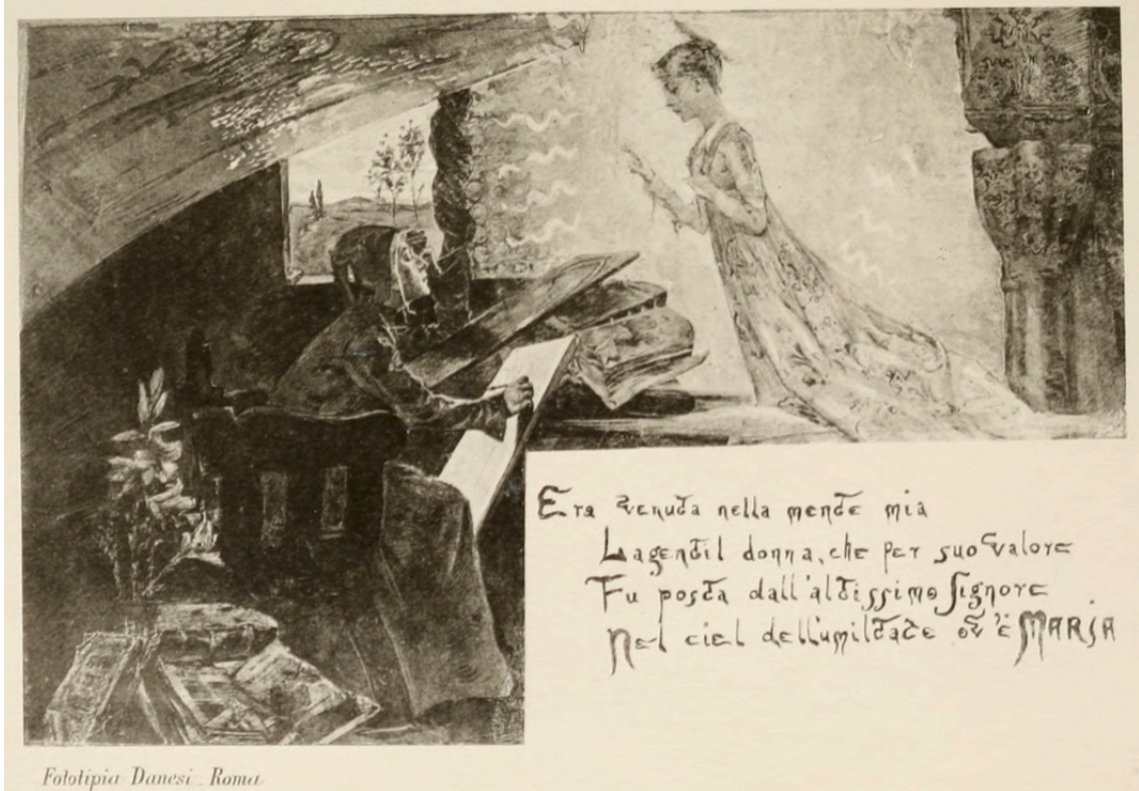 Era venuta nella mente mia
La gentil donna, che per suo valore
Fu posta dall'altissimo Signore
Nel ciel dell'umiltate ov'è MARIA
Fototipia Danesi - Roma